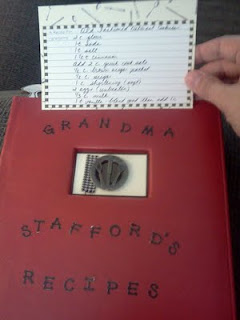 Old Fashioned Oatmeal Cookies
2 c flour
1 t soda
1 t salt
1 t cinnamon
add 2 c quick oats
c brown sugar packed
c sugar
c shortening
eggs
c milk
1 t vanilla
GRANDMA
STAFFORD'S
RECIPES